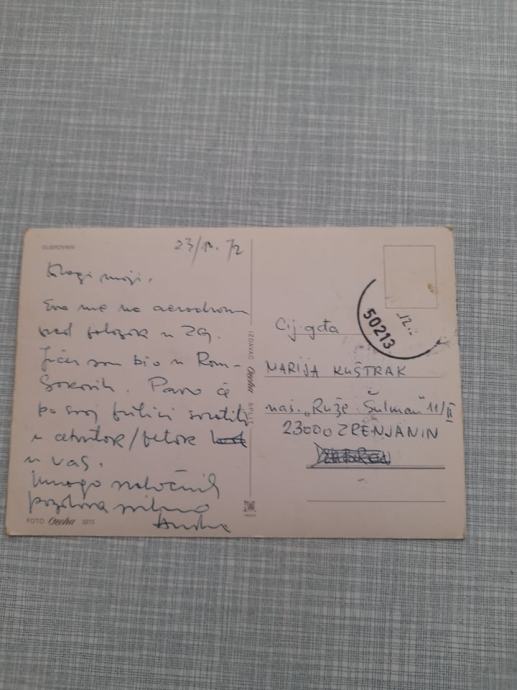 DUBROVNIK
23/10. 72
Dragi moji,
Evo me na aerodromu
pred polazak u ZG.
Jučer sam bio u
Pavo će
po svoj prilici svratiti
u četvrtak/petak
u vas.
Mnogo srdačnih
pozdrava
FOTO
IZDAVAČ
50213
12.
Cij. gđa
MARIJA KUŠTRAK
nas. „Ruže Šulman" 11/II
23000 ZRENJANIN